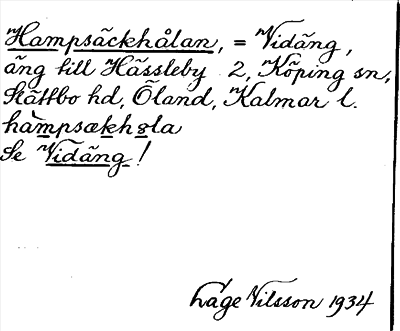 Hampsäckhålan, = Vidäng,
äng till Hässleby 2, Köping sn,
Slättbo hd, Öland, Kalmar l.
hàmpsækhola
Se Vidäng!
Låge Nilsson 1934